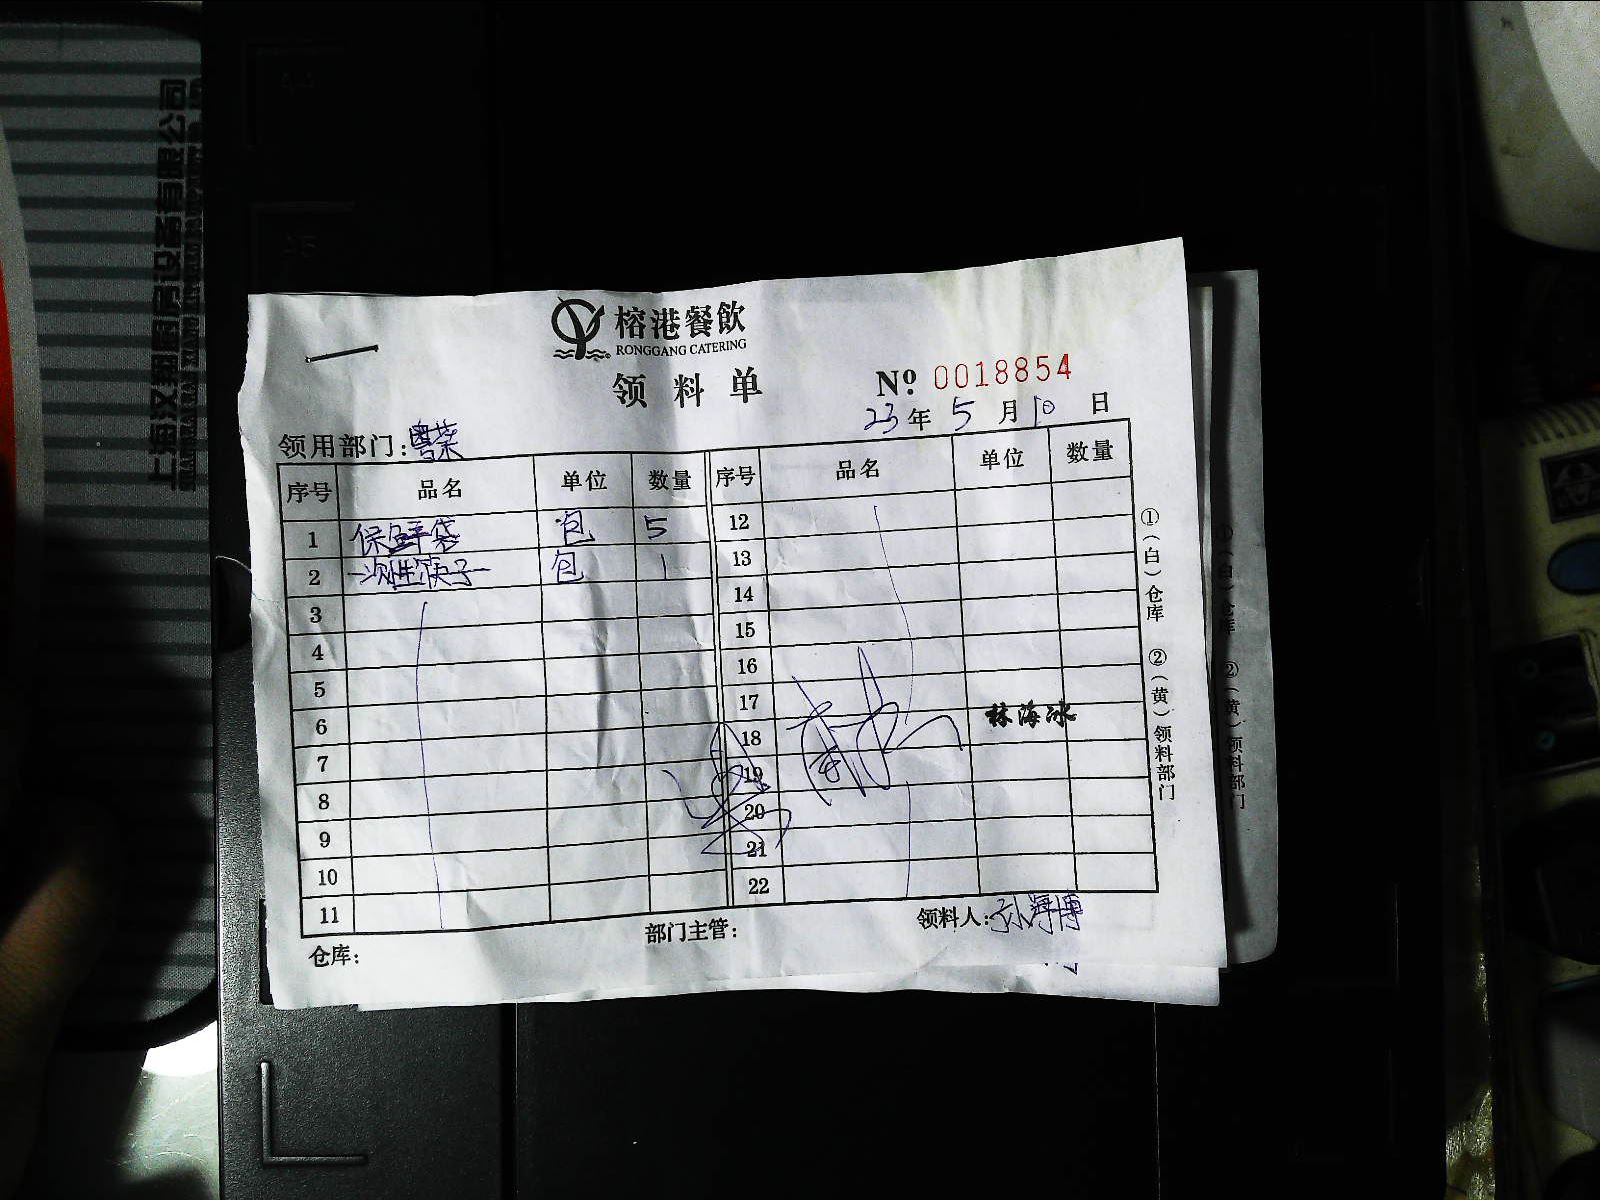 榕港餐飲
RONGGANG CATERING
领料单
Nº 0018854
23年5月10日
领用部门:粤菜
序号 品名 单位 数量 序号 品名 单位 数量
1 保鲜袋 包 5 12
2 一次性筷子 包 1 13
3 14
4 15
5 16
6 17 林海冰
7 18
8 19
9 20
10 21
11 22
仓库: 部门主管: 领料人:孙海博
①(白)仓库 ②(黄)领料部门
①(白)仓库 ②(黄)领料部门